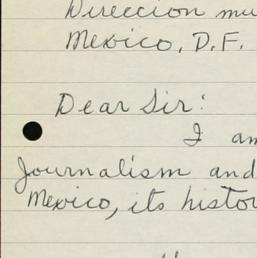 Direccion mu
Mexico, D.F.
Dear Sir:
I am
Journalism and
Mexico, its histor